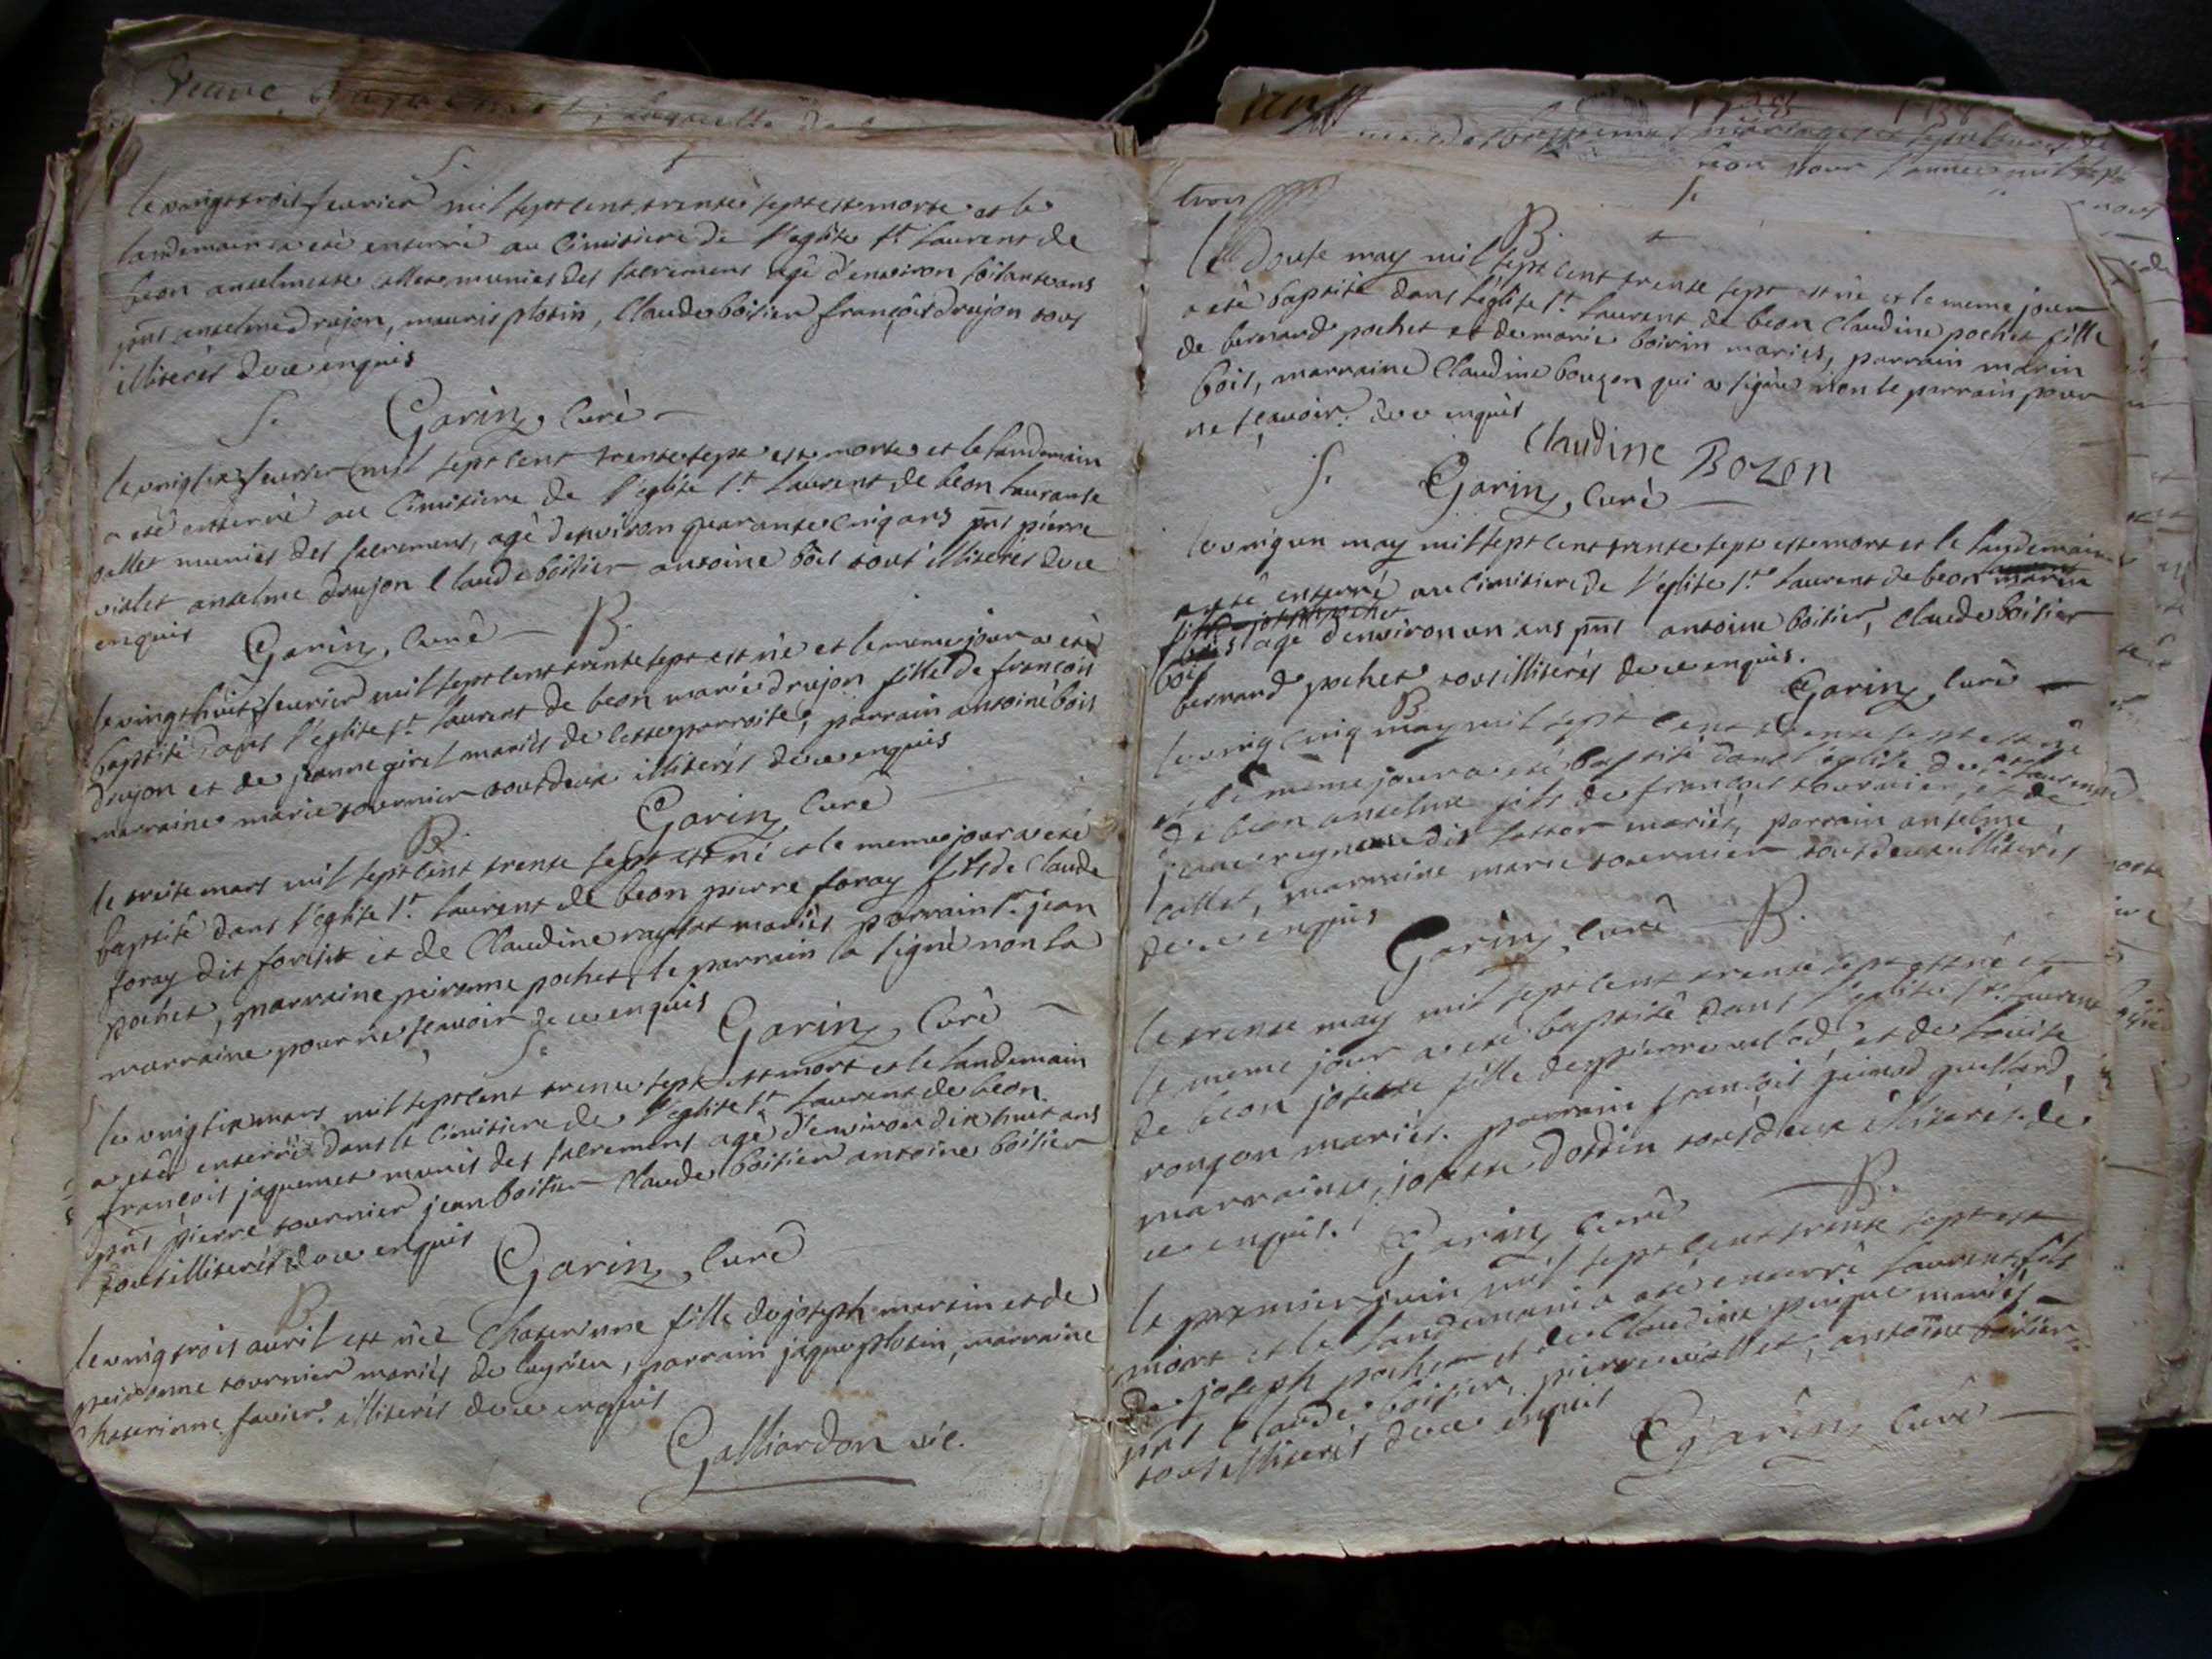 Veuve
S.
le vingt trois feurier mil sept cent trente sept est morte et le
landemain a eté enterré au Cimitiere de l'eglise st laurent de
beon anselmette callet munies des sacremens agé d'environ soisante ans
pnts anselme drujon, mauris plotin, Claude boitier françois drujon tous
illiterés de ce enquis
Garin, Curé
S.
le vingt six feurier mil sept cent trente sept est morte et le landemain
a eté enterré au Cimitiere de l'eglise st laurent de beon lauranse
callet munies des sacremens, agé d'environ quarante cinq ans pnts pierre
violet anselme drujon Claude boitier antoine bois tous illiterés de ce
enquis Garin, Curé
B.
le vingt huit feurier mil sept cent trente sept est né et le meme jour a eté
baptisé dans l'eglise st laurent de beon marie drujon fille de françois
drujon et de jeanne girel mariés de cette parroisse, parrain antoine bois
marraine marie tournier tout deux illiterés de ce enquis
Garin Curé
B.
le treise mars mil sept cent trente sept est né et le meme jour a eté
baptisé dans l'eglise st laurent de beon pierre foray fils de Claude
foray dit et de Claudine mariés parrain sr jean
pochet, marraine peironne pochet, le parrain a signé non la
marraine pour ne scavoir de ce enquis
Garin, Curé
S.
le vingt six mars mil sept cent trente sept est mort et le landemain
a eté enterré dans le Cimitiere de l'eglise st laurent de beon
françois jaquemet munis des sacremens agé d'environ dix huit ans
pnts pierre tournier jean boitier Claude boitier antoine boitier
tous illiterés de ce enquis
Garin, Curé
B.
le vingt trois auril est née Chaterinne fille de joseph martin et de
peironne tournier mariés de lugrieu, parrain jaque plotin, marraine
Chaterinne favier. illiterés de ce enquis
Galliardon vic.
1738
mariages et sepultures de
beon pour l'année mil sept
trois
B.
le douse may mil sept cent trente sept est né et le meme jour
a eté baptisé dans l'eglise st laurent de beon Claudine pochet fille
de bernard pochet et de marie boirin mariés, parrain marin
bois, marraine Claudine bouzon qui a signé non le parrain pour
ne scavoir. de ce enquis
Claudine Bozon
Garin, Curé
S.
le vingt un may mil sept cent trente sept est mort et le landemain
a eté enterré au Cimitiere de l'eglise st laurent de beon marin
bois agé d'environ un ans pnts antoine boitier, Claude boitier
bernard pochet tous illiterés de ce enquis.
Garin, Curé
B.
le vingt cinq may mil sept cent trente sept est né
et le meme jour a eté baptisé dans l'eglise de st laurent
de beon anselme fils de françois tournier, et de
dit mariés, parrain anselme
callet, marraine marie tournier tout deux illiterés
de ce enquis
Garin, Curé
B.
le trente may mil sept cent trente sept est né et
le meme jour a eté baptisé dans l'eglise st laurent
de beon josette fille de pierre et de louise
rouson mariés. parrain françois
marraine, josette dottin tout deux illiterés de
ce enquis. Garin, Curé
B.
le premier juin mil sept cent trente sept est
mort et le landemain a eté enterré laurent fils
de joseph pochet et de Claudine mariés
pnts Claude boitier, pierre violet, antoine boitier
tous illiterés de ce enquis
Garin, Curé